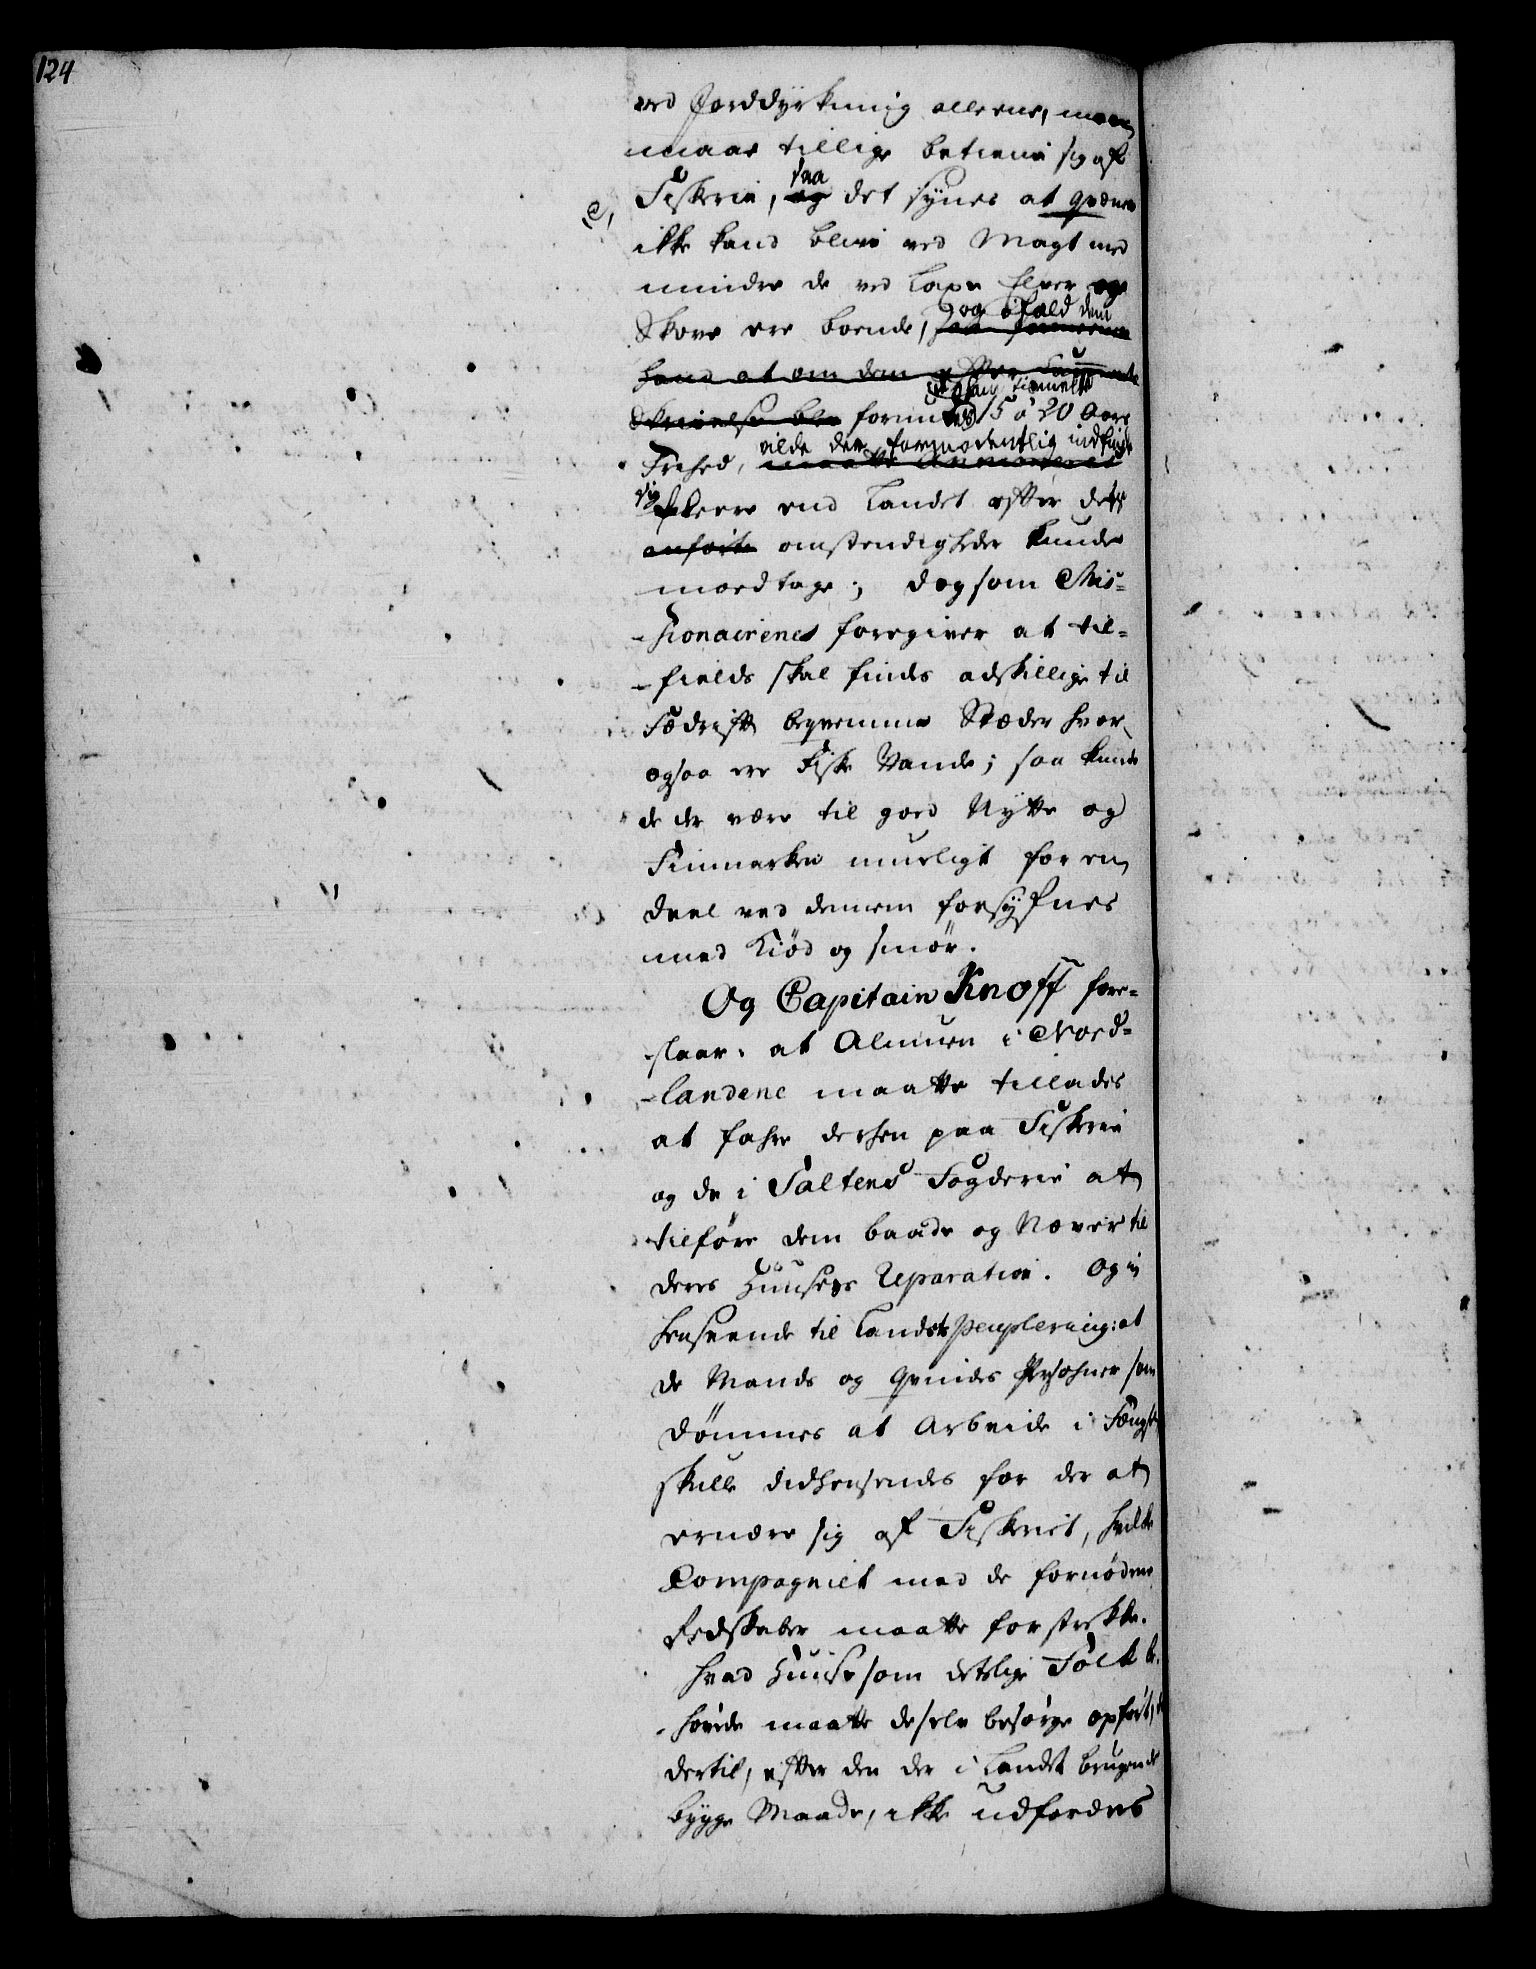 124
ved Jorddyrkning alleene, men
maae tillige betiene sig af
Fiskerie, saa og det synes at Qvæner
ikke kand blive ved Magt med
mindre de ved Laxe Elver og
Skove ere boende, og ifald dem
hand at om dem
Skrivelse blev forundtes 15 à 20 Aars
Frihed, vilde der formodentlig indfinde
sig fleere end Landet efter dets
anførte omstendigheder kunde
modtage; dog som Mis=
sionairenes foregiver at til=
fields skal findes adskillige til
Fædrift beqvemme Stæder hvor
ogsaa ere Fiske Vande; saa kunde
de der være til goed Nytte og
Finmarken mueligt for en
deel ved dennem forsyfnes
med Kiød og smør.
Og Capitain Knoff fore=
slaar: at Almuen i Nord=
landene maatte tillades
at fahre derhen paa Fiskerie
og de i Saltens Fogderie at
tilføre dem baade og Næver til
deres Huuses Reparation. Og i
henseende til Landets Peuplering: at
de Mands og Qvindes Persohner som
dømmes at Arbeide i Fængsel
skulle didhensendes for der at
ernære sig af Fiskeriet, hvilke
Compagniet med de fornødne
Redskaber maatte forstrekke.
Hvad Huuse som detslige Folk be=
høvede maatte de selv besørge opført,
dertil, efter den der i Landet brugende
bygge Maade, ikke udfordres